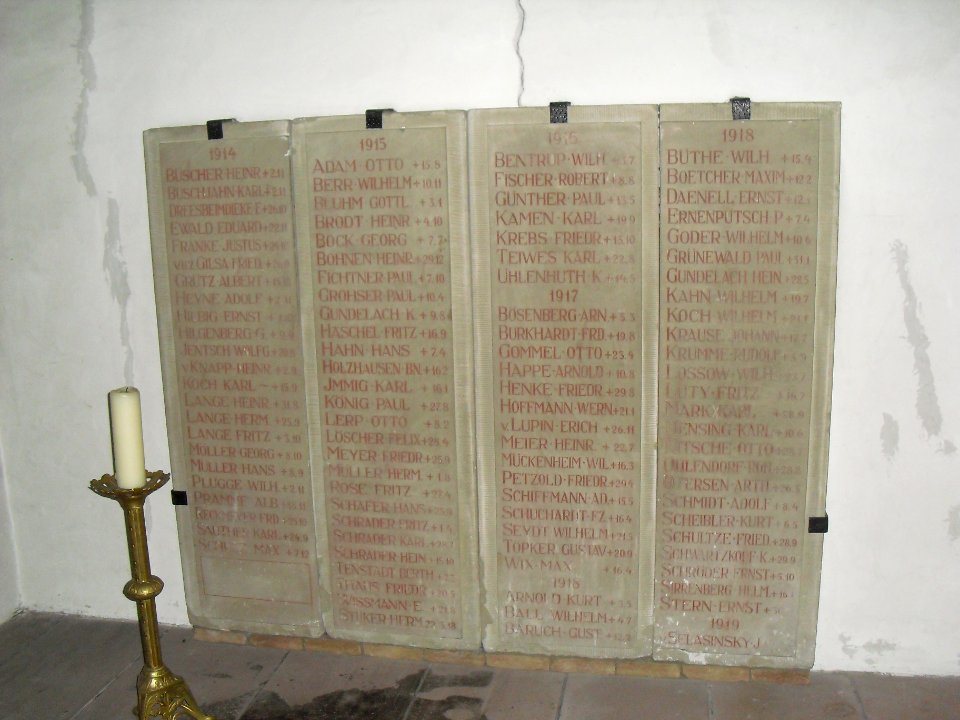 1914
BUSCHER HEINR +2.11
BUSCHJAHN KARL +2.11
DREESBEIMDIEKE E +26.10
EWALD EDUARD +22.11
FRANKE JUSTUS
v.u.z GILSA FRIED.
GRÜTZ ALBERT
HEYNE ADOLF
HILBIG ERNST
HILGENBERG G. +9.9
JENTSCH WLFG
v KNAPP HEINR
KOCH KARL
LANGE HEINR
LANGE HERM.
LANGE FRITZ
MÖLLER GEORG +8.10
MÜLLER HANS +8.9
PLÜGGE WILH.
PRAMME ALB
BECKMEYER FRD
SAUTHER KARL
MAX +7.12
1915
ADAM OTTO +15.8
BERR WILHELM +10.11
BLUHM GOTTL +3.1
BRODT HEINR +4.10
BOCK GEORG +7.7
BOHNEN HEINR +29.12
FICHTNER PAUL +7.10
GROHSER PAUL +10.4
GUNDELACH K +9.8
HASCHEL FRITZ +16.9
HAHN HANS +7.4
HOLZHAUSEN BN +16.2
JMMIG KARL +16.1
KÖNIG PAUL +27.8
LERP OTTO +8.2
LÖSCHER FELIX +28.4
MEYER FRIEDR +25.9
MÜLLER HERM. +1.8
ROSE FRITZ +27.4
SCHÄFER HANS +25.9
SCHRADER FRITZ +1.4
SCHRADER KARL
SCHRADER HEIN +15.10
TENSTADT BERTH
THAUS FRIEDR
WISSMANN E
STÜKER HERM
1916
BENTRUP WILH
FISCHER ROBERT +8.8
GÜNTHER PAUL +13.5
KAMEN KARL +19.9
KREBS FRIEDR +15.10
TEIWES KARL +22.8
UHLENHUTH K +14.5
1917
BÖSENBERG ARN +5.8
BURKHARDT FRD +19.8
GOMMEL OTTO +23.4
HAPPE ARNOLD +10.8
HENKE FRIEDR +29.8
HOFFMANN WERN +21.1
v. LUPIN ERICH +26.11
MEIER HEINR +22.7
MÜCKENHEIM WIL +16.3
PETZOLD FRIEDR +29.4
SCHIFFMANN AD +15.5
SCHUCHARDT FZ +16.4
SEYDT WILHELM +21.5
TÖPKER GUSTAV +20.9
WIX MAX +16.4
1918
ARNOLD KURT +3.5
BALL WILHELM +4.7
BARUCH GUST
1918
BÜTHE WILH +15.4
BOETCHER MAXIM +12.2
DAENELL ERNST
ERNENPUTSCH P +7.4
GODER WILHELM +10.6
GRÜNEWALD PAUL +31.1
GUNDELACH HEIN +28.5
KAHN WILHELM +19.7
KOCH WILHELM
KRAUSE JOHANN
KRUMME RUDOLF
LOSSOW WILH
LUTY FRITZ
MARK KARL
JENSING KARL
OTTO
UHLENDORF ROB
ARTH
SCHMIDT ADOLF +8.4
SCHEIBLER KURT +6.5
SCHULTZE FRIED +28.9
SCHWARTZKOPF K +29.9
SCHRÖDER ERNST +5.10
HELM
STERN ERNST
1919
J